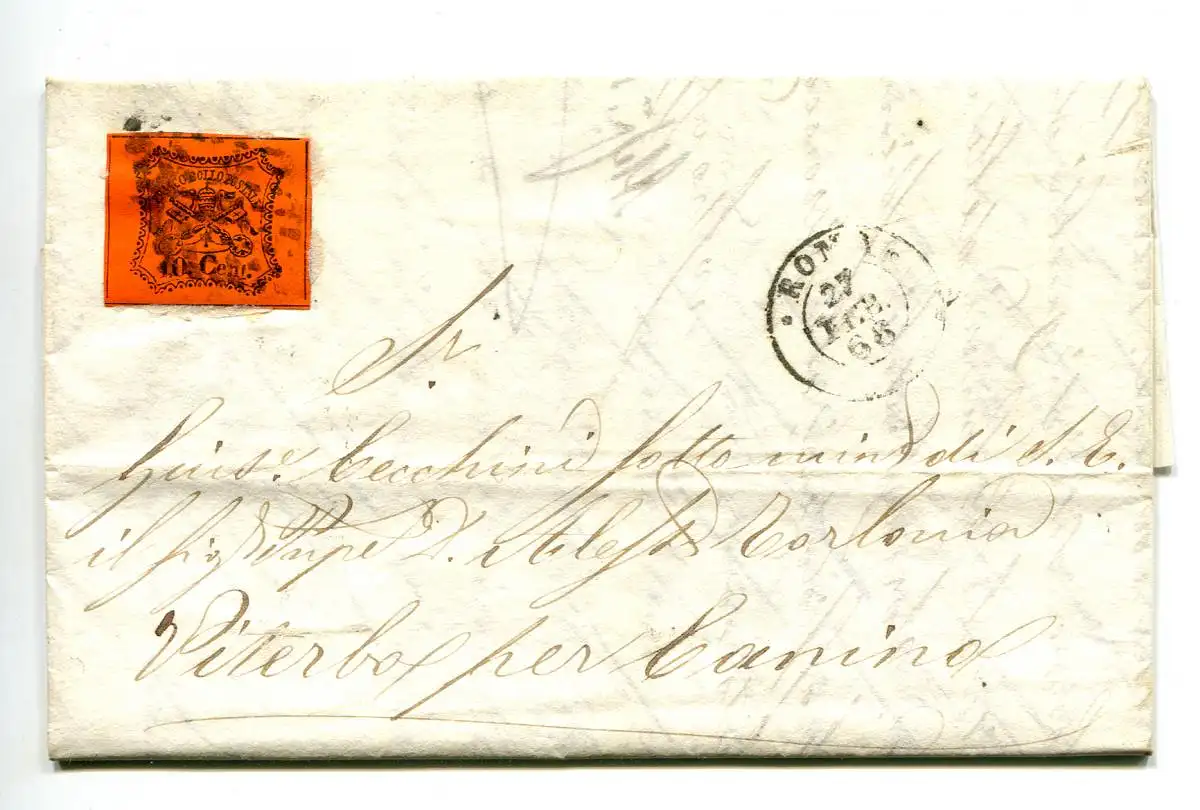 FRANCO BOLLO POSTALE
10 Cent.
ROMA
27
FEB
68
Sr.
Giuse. Cecchini sotto mino di S. E.
il Sig Pnpe D. Aless Torlonia
Viterbo per Canino